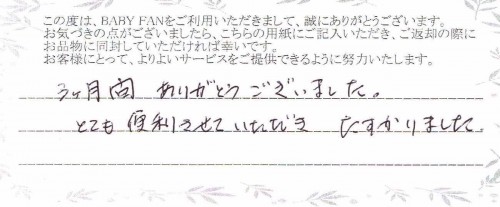 この度は、BABY FANをご利用いただきまして、誠にありがとうございます。
お気づきの点がございましたら、こちらの用紙にご記入いただき、ご返却の際に
お品物に同封していただければ幸いです。
お客様にとって、よりよいサービスをご提供できるように努力いたします。
3ヶ月間 ありがとうございました。
とても便利させていただき たすかりました。